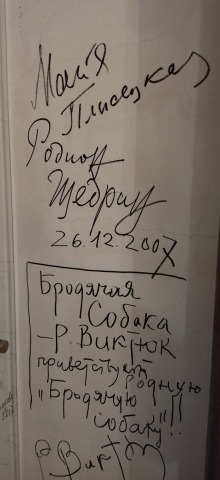 Майя
Плисецкая
Родион
Щедрин
26.12.2007
Бродячая
Собака
– Р. Виктюк
приветствует
родную
"Бродячую
собаку"!!
Р Виктюк